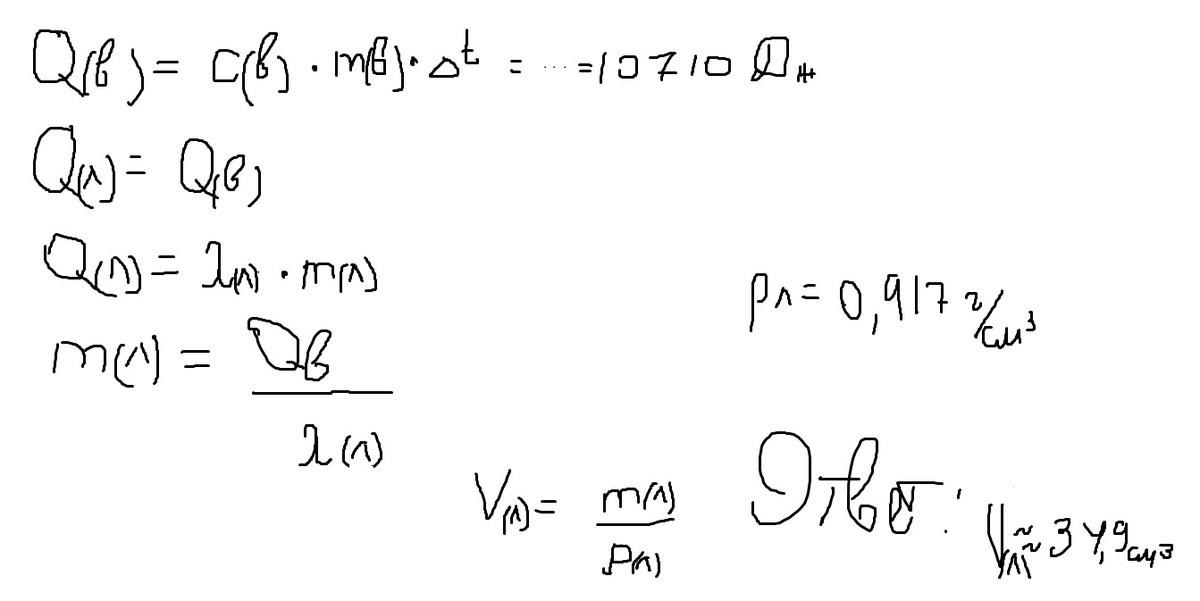 Q(в) = C(в) · m(в) · Δt = ... = 10710 Дж
Q(л) = Q(в)
Q(л) = λ(л) · m(л)
ρл = 0,917 г/см³
m(л) = Qв / λ(л)
V(л) = m(л) / ρ(л)
Ответ: V(л) ≈ 34,9 см³